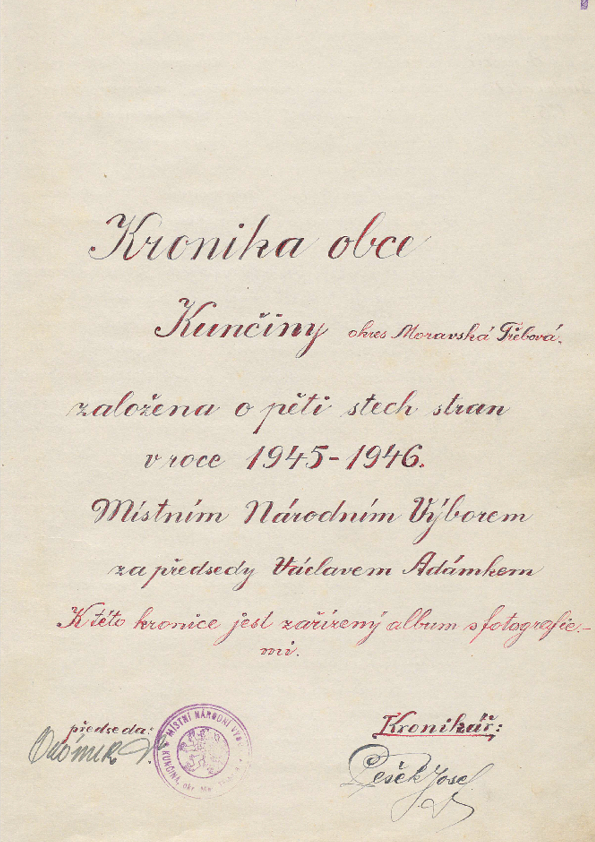 Kronika obce
Kunčiny okres Moravská Třebová.
založena o pěti stech stran
v roce 1945-1946.
Místním Národním Výborem
za předsedy Václavem Adámkem
K této kronice jest zařízený album s fotografie-
mi.
předseda:
Kronikář:
MÍSTNÍ NÁRODNÍ
Pešek Josef